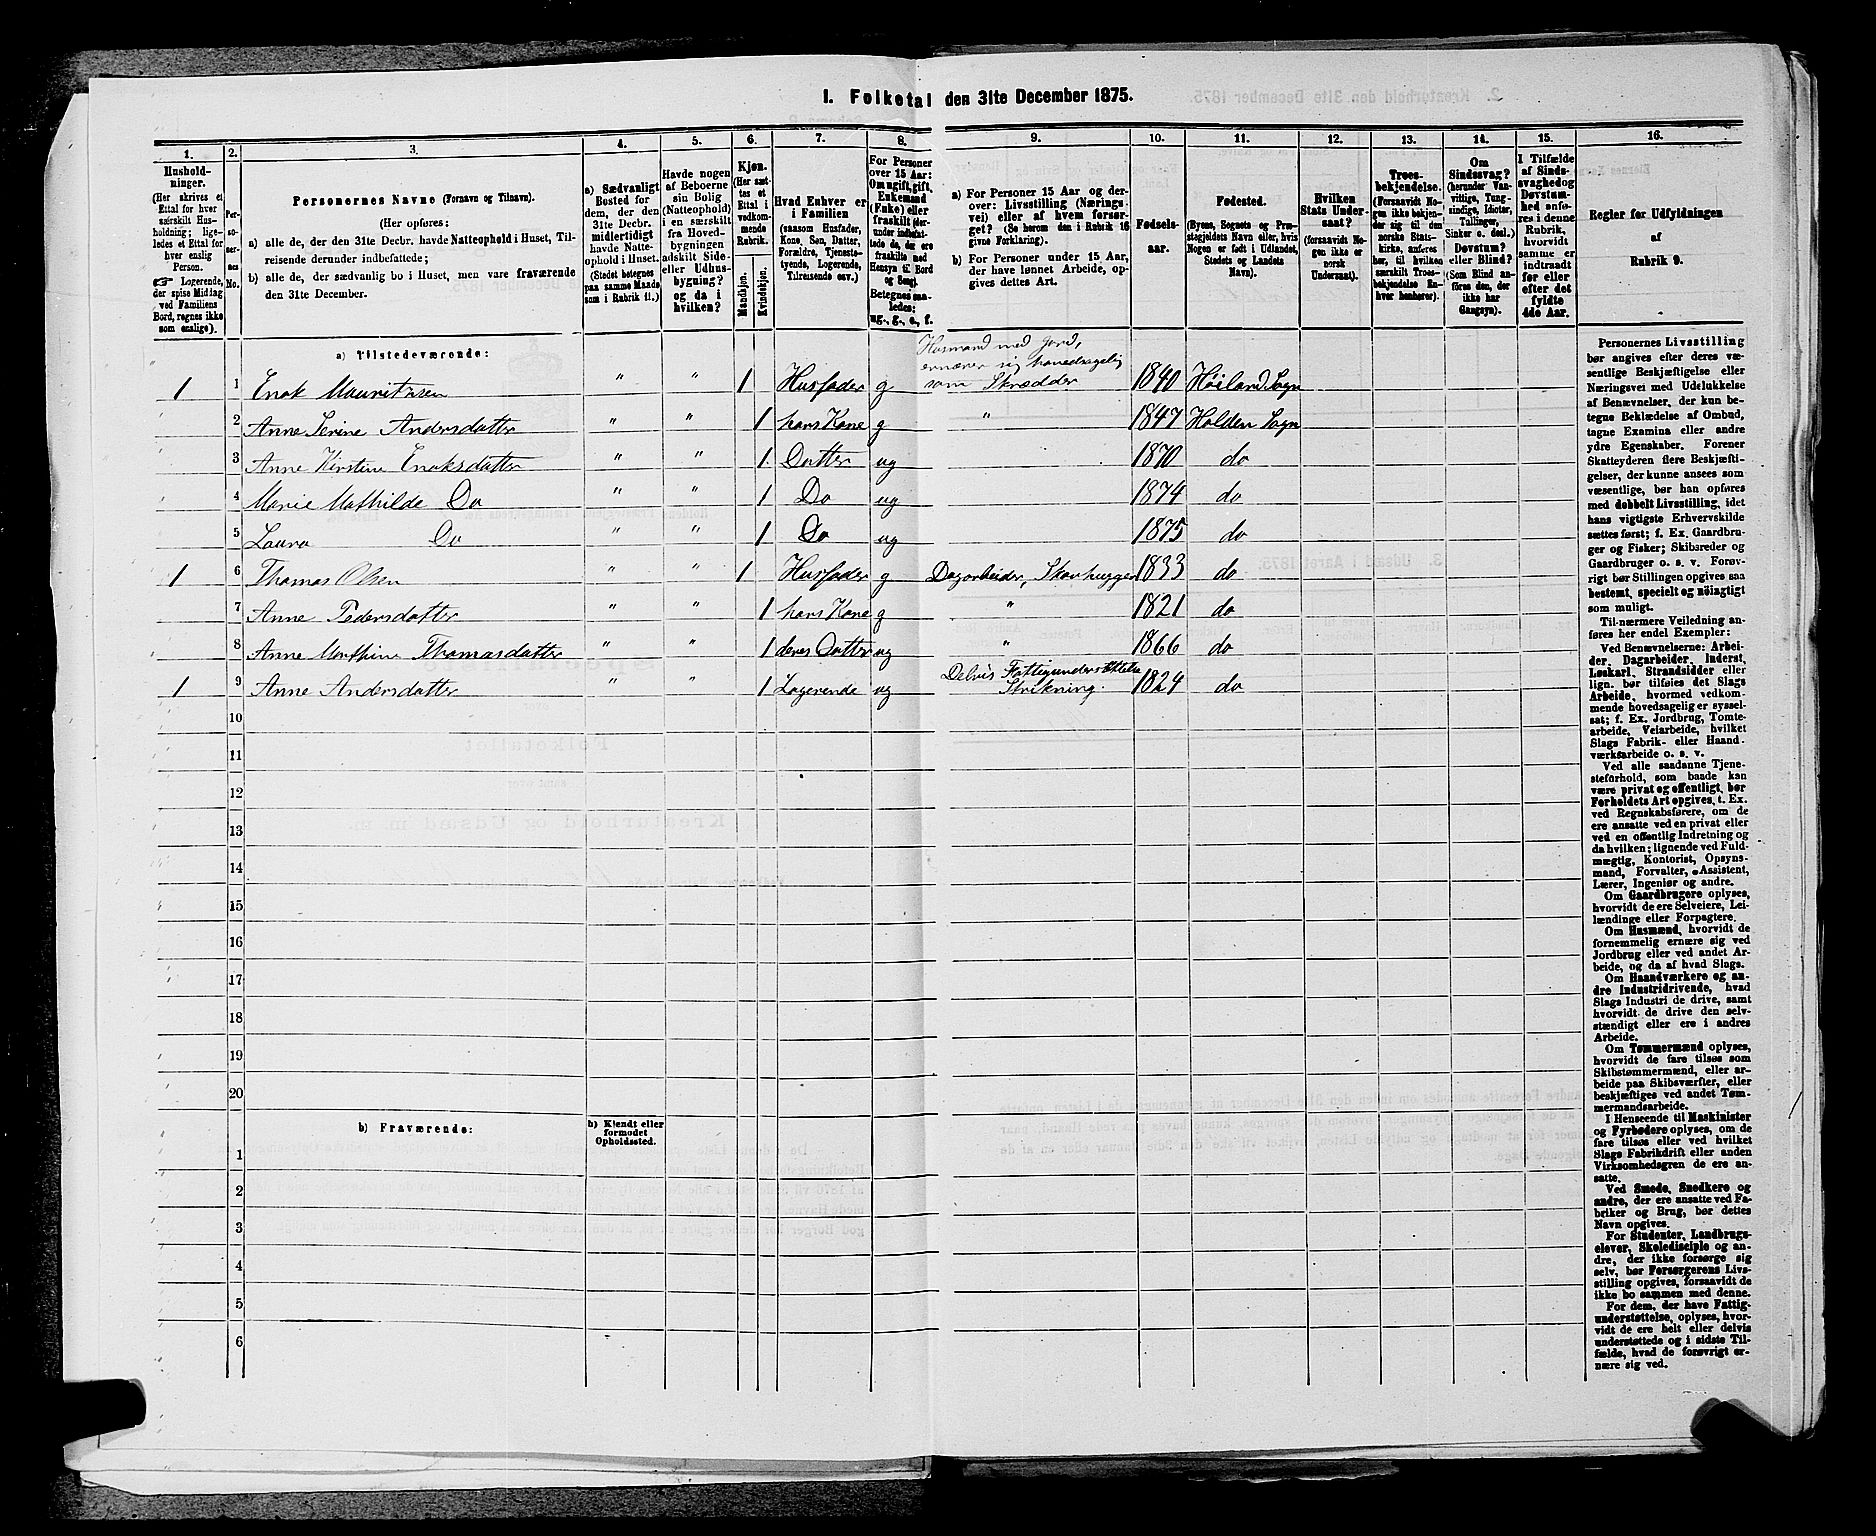 I. Folketal den 31te December 1875.
1.
Hushold-
ninger.
(Her skrives et
Ettal for hver
særskilt Hus-
holdning; lige-
ledes et Ettal for
hver enslig
Person.
Logerende,
der spise Middag
ved Familiens
Bord, regnes ikke
som enslige).
2.
Per-
so-
ner-
nes
No.
3.
Personernes Navne (Fornavn og Tilnavn).
(Her opføres:
a) alle de, der den 31te Decbr. havde Natteophold i Huset, Til-
reisende derunder indbefattede;
b) alle de, der sædvanlig bo i Huset, men vare fraværende
den 31te December.
4.
a) Sædvanligt
Bosted for
dem, der den
31te Decbr.
midlertidigt
havde Natte-
ophold i Huset.
(Stedet betegnes
paa samme Maade
som i Rubrik 11.)
5.
Havde nogen
af Beboerne
sin Bolig
(Natteophold)
i en særskilt
fra Hoved-
bygningen
adskilt Side-
eller Udhus-
bygning?
og da i
hvilken?
6.
Kjøn.
(Her sæt-
tes et
Ettal i
vedkom-
mende
Rubrik.
Mandkjøn.
Kvindekjøn.
7.
Hvad Enhver er
i Familien
(saasom Husfader,
Kone, Søn, Datter,
Forældre, Tjeneste-
tyende, Logerende,
Tilreisende osv.)
8.
For Personer
over 15 Aar:
Om ugift, gift,
Enkemand
(Enke) eller
fraskilt (der-
under indbefat-
tede de, der ere
fraskilte med
Hensyn til Bord
og Seng).
Betegnes saa-
ledes:
ug., g., e., f.
9.
a) For Personer 15 Aar og der-
over: Livsstilling (Nærings-
vei) eller af hvem forsør-
get? (Se herom den i Rubrik 16
givne Forklaring).
b) For Personer under 15 Aar,
der have lønnet Arbeide, op-
gives dettes Art.
10.
Fødsels-
aar.
11.
Fødested.
(Byens, Sognets og Præ-
stegjeldets Navn eller, hvis
Nogen er født i Udlandet,
Stedets og Landets
Navn).
12.
Hvilken
Stats Under-
saat?
(forsaavidt No-
gen ikke er
norsk
Undersaat).
13.
Troes-
bekjendelse.
(Forsaavidt No-
gen ikke bekjen-
der sig til den
norske Stats-
kirke, anføres
her, til hvilken
særskilt Troes-
bekjendelse En-
hver henhører).
14.
Om
Sindssvag?
(herunder Van-
vittige, Tung-
sindige, Idioter,
Tullinger,
Sinker o. desl.)
Døvstum?
eller Blind?
(Som Blind an-
føres den, der
ikke har
Gangsyn).
15.
I Tilfælde
af Sinds-
svaghed og
Døvstum-
hed anfø-
res i denne
Rubrik,
hvorvidt
samme er
indtraadt
før eller
efter det
fyldte
4de Aar.
16.
Regler for Udfyldningen
af
Rubrik 9.
a) Tilstedeværende:
Husmand med Jord,
ernærer sig hovedsagelig
1 1 Enok Mauritzsen " " 1 Husfader g som Skrædder 1840 Høiland Sogn
2 Anne Serine Andersdatter " " 1 hans Kone g " 1847 Holden Sogn
3 Anne Kirstine Enoksdatter " " 1 Datter ug 1870 do
4 Marie Mathilde Do " " 1 Do ug 1874 do
5 Laura Do " " 1 Do ug 1875 do
1 6 Thomas Olsen " " 1 Husfader g Dagarbeider, Skovhugger 1833 do
7 Anne Pedersdatter " " 1 hans Kone g " 1821 do
8 Anne Marthine Thomasdatter " " 1 deres Datter ug " 1866 do
Delvis Fattigunderstøttelse
1 9 Anne Andersdatter " " 1 Logerende ug Strikning. 1824 do
10
11
12
13
14
15
16
17
18
19
20
b) Fraværende:
b) Kjendt eller
formodet
Opholdssted.
1
2
3
4
5
6
Personernes Livsstilling
bør angives efter deres væ-
sentlige Beskjæftigelse eller
Næringsvei med Udelukkelse
af Benævnelser, der kun be-
tegne Beklædelse af Ombud,
tagne Examina eller andre
ydre Egenskaber. Forener
Skatteyderen flere Beskjæfti-
gelser, der kunne ansees som
væsentlige, bør han opføres
med dobbelt Livsstilling, idet
hans vigtigste Erhvervskilde
sættes først; f. Ex. Gaardbru-
ger og Fisker; Skibsreder og
Gaardbruger o. s. v. Forøv-
rigt bør Stillingen opgives saa
bestemt, specielt og nöiagtigt
som muligt.
Til nærmere Veiledning an-
føres her endel Exempler:
Ved Benævnelserne: Arbei-
der, Dagarbeider, Inderst,
Løskarl, Strandsidder eller
lign. bør tilføies det Slags
Arbeide, hvormed vedkom-
mende hovedsagelig er syssel-
sat; f. Ex. Jordbrug, Tomte-
arbeide, Veiarbeide, hvilket
Slags Fabrik- eller Haand-
værksarbeide o. s. v.
Ved alle saadanne Tjene-
steforhold, som baade kan
være privat og offentligt, bør
Forholdets Art opgives, t. Ex.
ved Regnskabsførere, om de
ere ansatte ved en privat eller
ved en offentlig Indretning og
da hvilken; lignende ved Fuld-
mægtig, Kontorist, Opsyns-
mand, Forvalter, Assistent,
Lærer, Ingeniør og andre.
Om Gaardbrugere oplyses,
hvorvidt de ere Selveiere, Lei-
lændinge eller Forpagtere.
Om Husmænd, hvorvidt de
fornemmelig ernære sig ved
Jordbrug eller ved andet Ar-
beide, og da af hvad Slags.
Om Haandværkere og an-
dre Industridrivende, hvad
Slags Industri de drive, samt
hvorvidt de drive den selv-
stændigt eller ere i andres
Arbeide.
Om Tømmermænd oplyses,
hvorvidt de fare tilsøs som
Skibstømmermænd, eller ar-
beide paa Skibsværfter, eller
beskjæftiges ved andet Tøm-
mermandsarbeide.
I Henseende til Maskinister
og Fyrbødere oplyses, om de
fare tilsøs eller ved hvilket
Slags Fabrikdrift eller anden
Virksomhedsgren de ere an-
satte.
Ved Smede, Snedkere og
andre, der ere ansatte ved Fa-
briker og Brug, bør dettes
Navn opgives.
For Studenter, Landbrugs-
elever, Skoledisciple og an-
dre, der ikke forsørge sig
selv, bør Forsørgerens Livs-
stilling opgives, forsaavidt de
ikke bo sammen med denne.
For dem, der have Fattig-
understøttelse, oplyses, hvor-
vidt de ere helt eller delvis
understøttede og i sidste Til-
fælde, hvad de forøvrigt er-
nære sig ved.